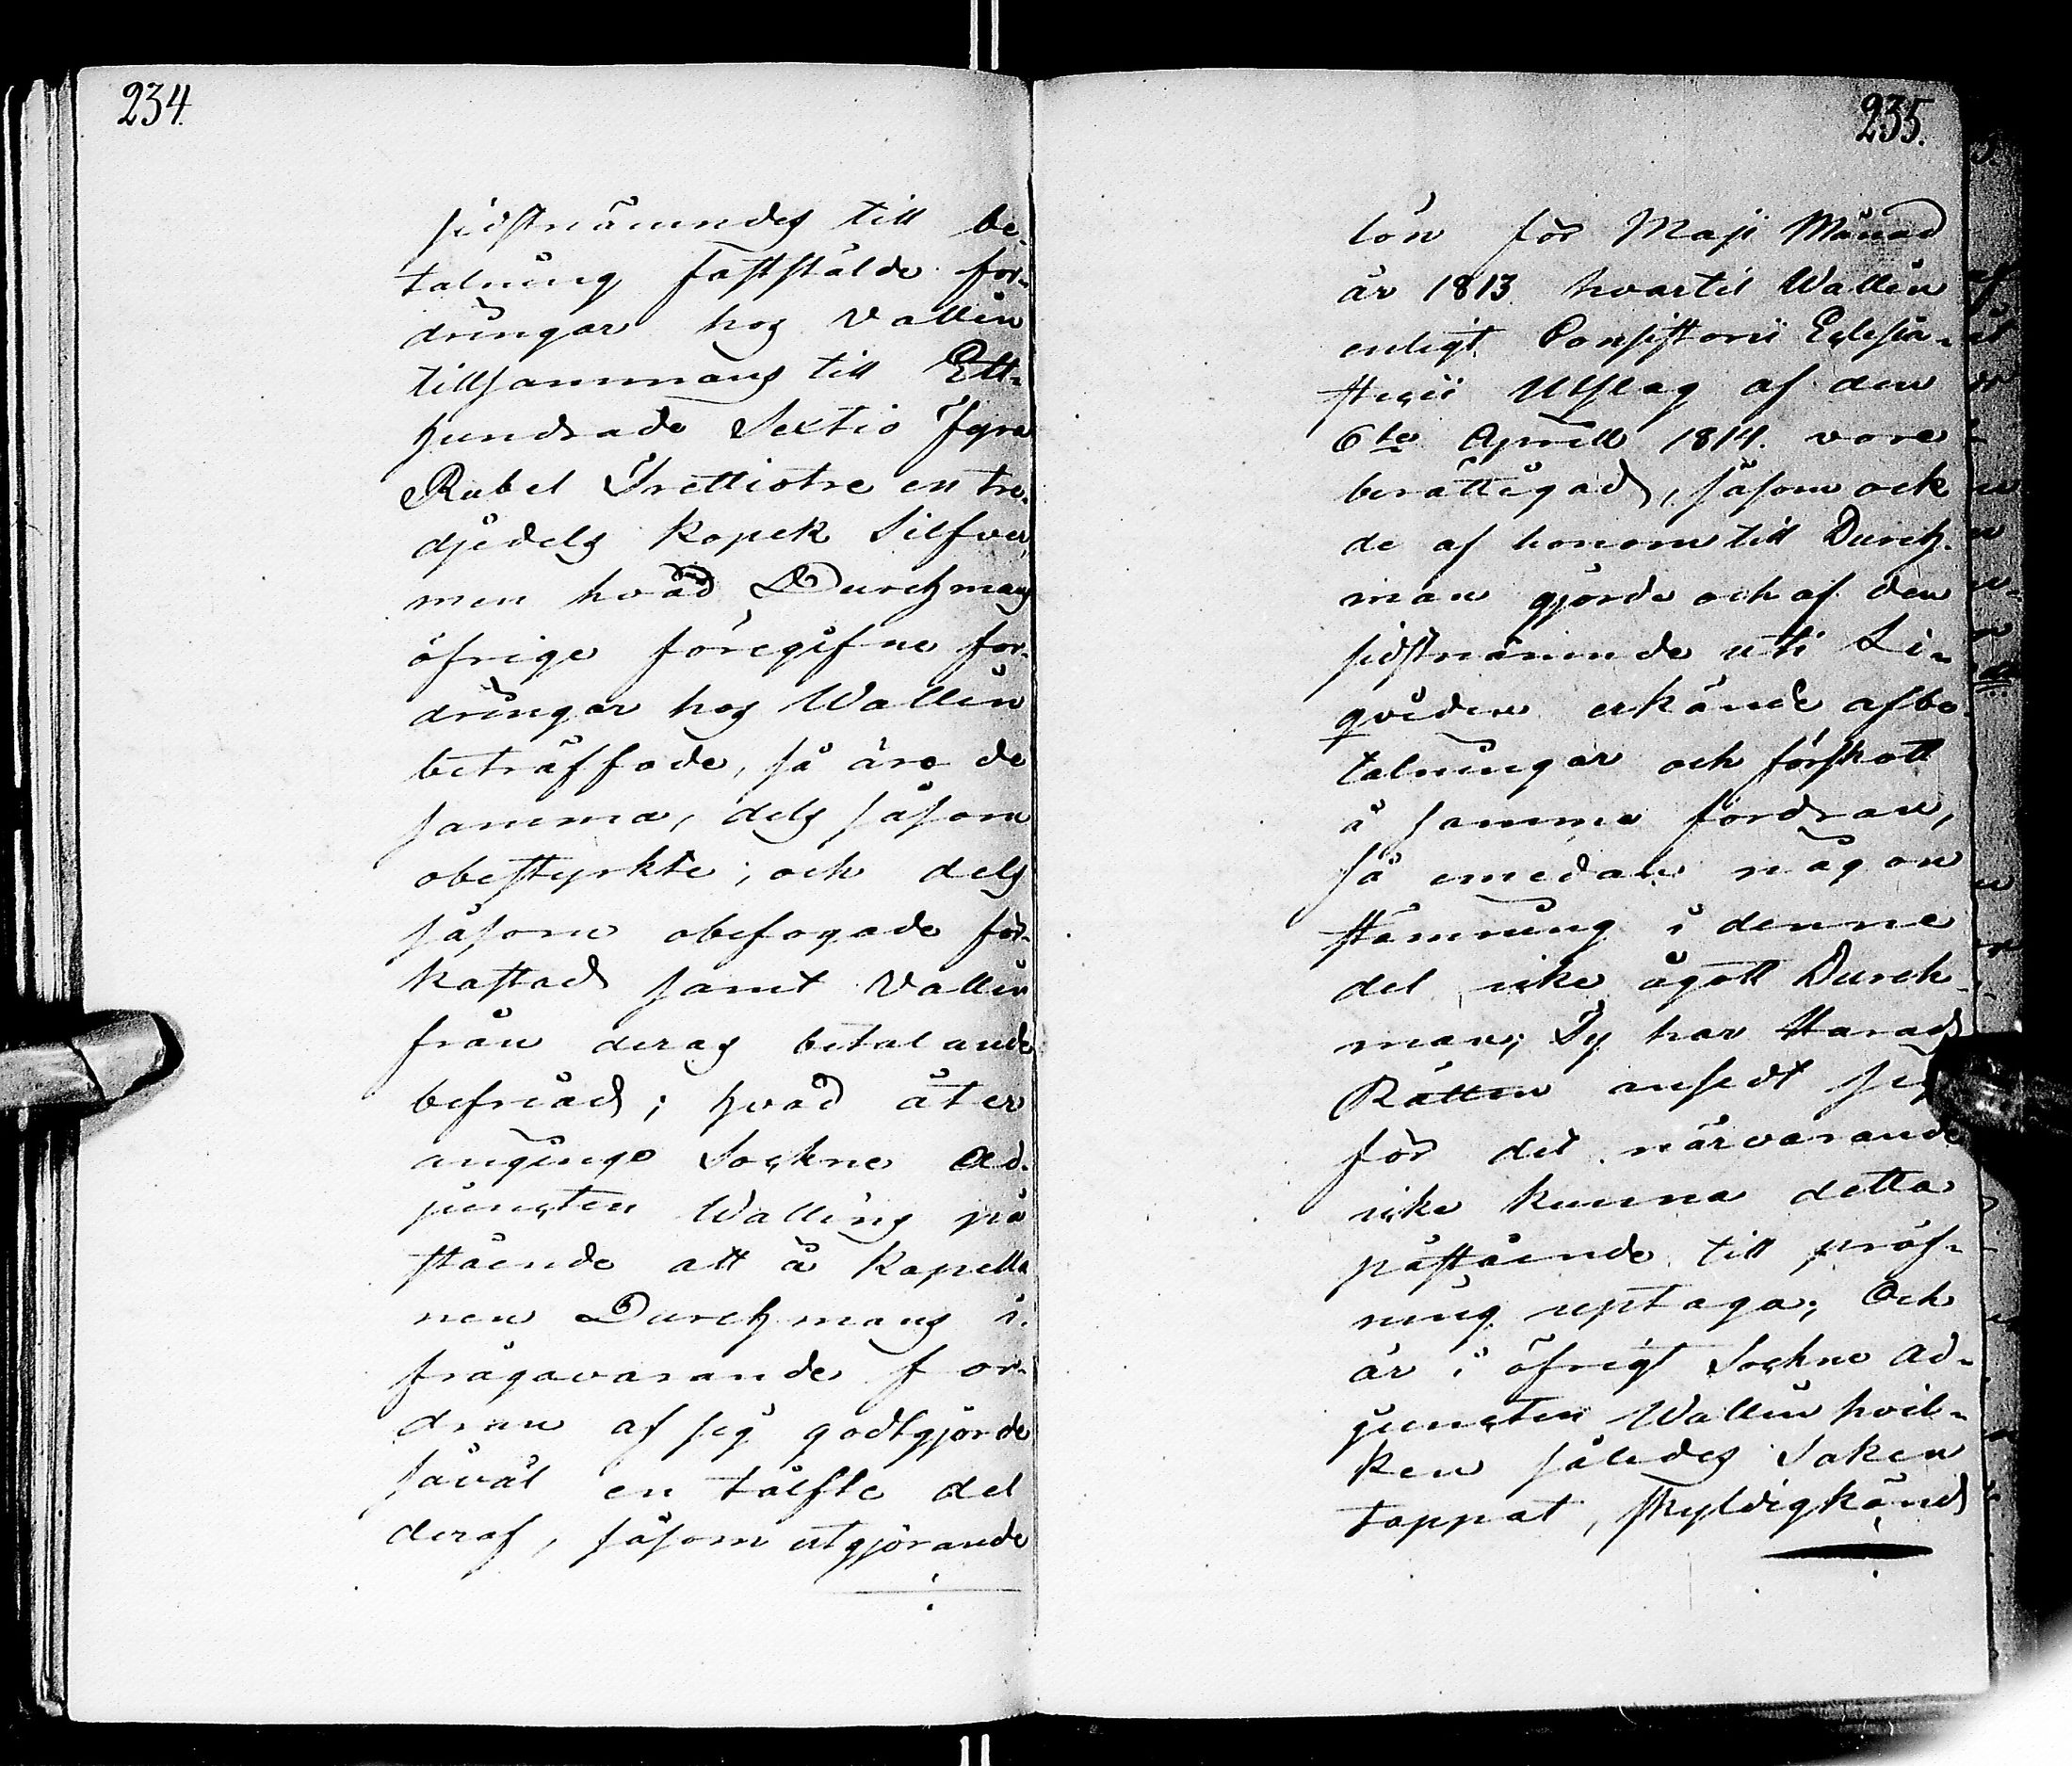 234.
sidstnämndes till be-
talning fastställde for-
dringar hos Vallin
tillsammans till Ett-
hundrade Sextio Fyra
Rubel Trettiotre en tre-
djedels kopek Silfver,
men hvad Durchmans
öfrige föregifne for-
dringar hos Wallin
beträffade, så äro de
samma, dels såsom
obestyrkte, och dels
såsom obefogade för-
kastad samt Vallin
från deras betalande
befriad; hvad åter
anginge Sockne Ad-
juncten Wallins på
stående att å Kapella
nen Durchmans i
frågavarande for-
dran af sig godtgjorde
såväl en tolfte del
deraf, såsom utgjörande
235.
lön för Maji Månad
år 1813 hvartil Wallin
enligt Consistorii Eclesia-
sticii Utslag af den
6te Aprill 1814. vore
berättigad, såsom ock
de af honom till Durch-
man gjorde och af den
sidstnämnde uti Li-
qviden erkände afbe-
talningar och förskott
å samma fordran,
så emedan någon
stämning i denne
del icke ägått Durch-
man; Ty har Härads
Rätten ansedt sig
för det närvarande
icke kunna detta
påstående till pröf-
ning uptaga; Och
är i öfrigt Sockne Ad-
juncten Wallin hvil-
ken således Saken
tappat, skyldigkänd